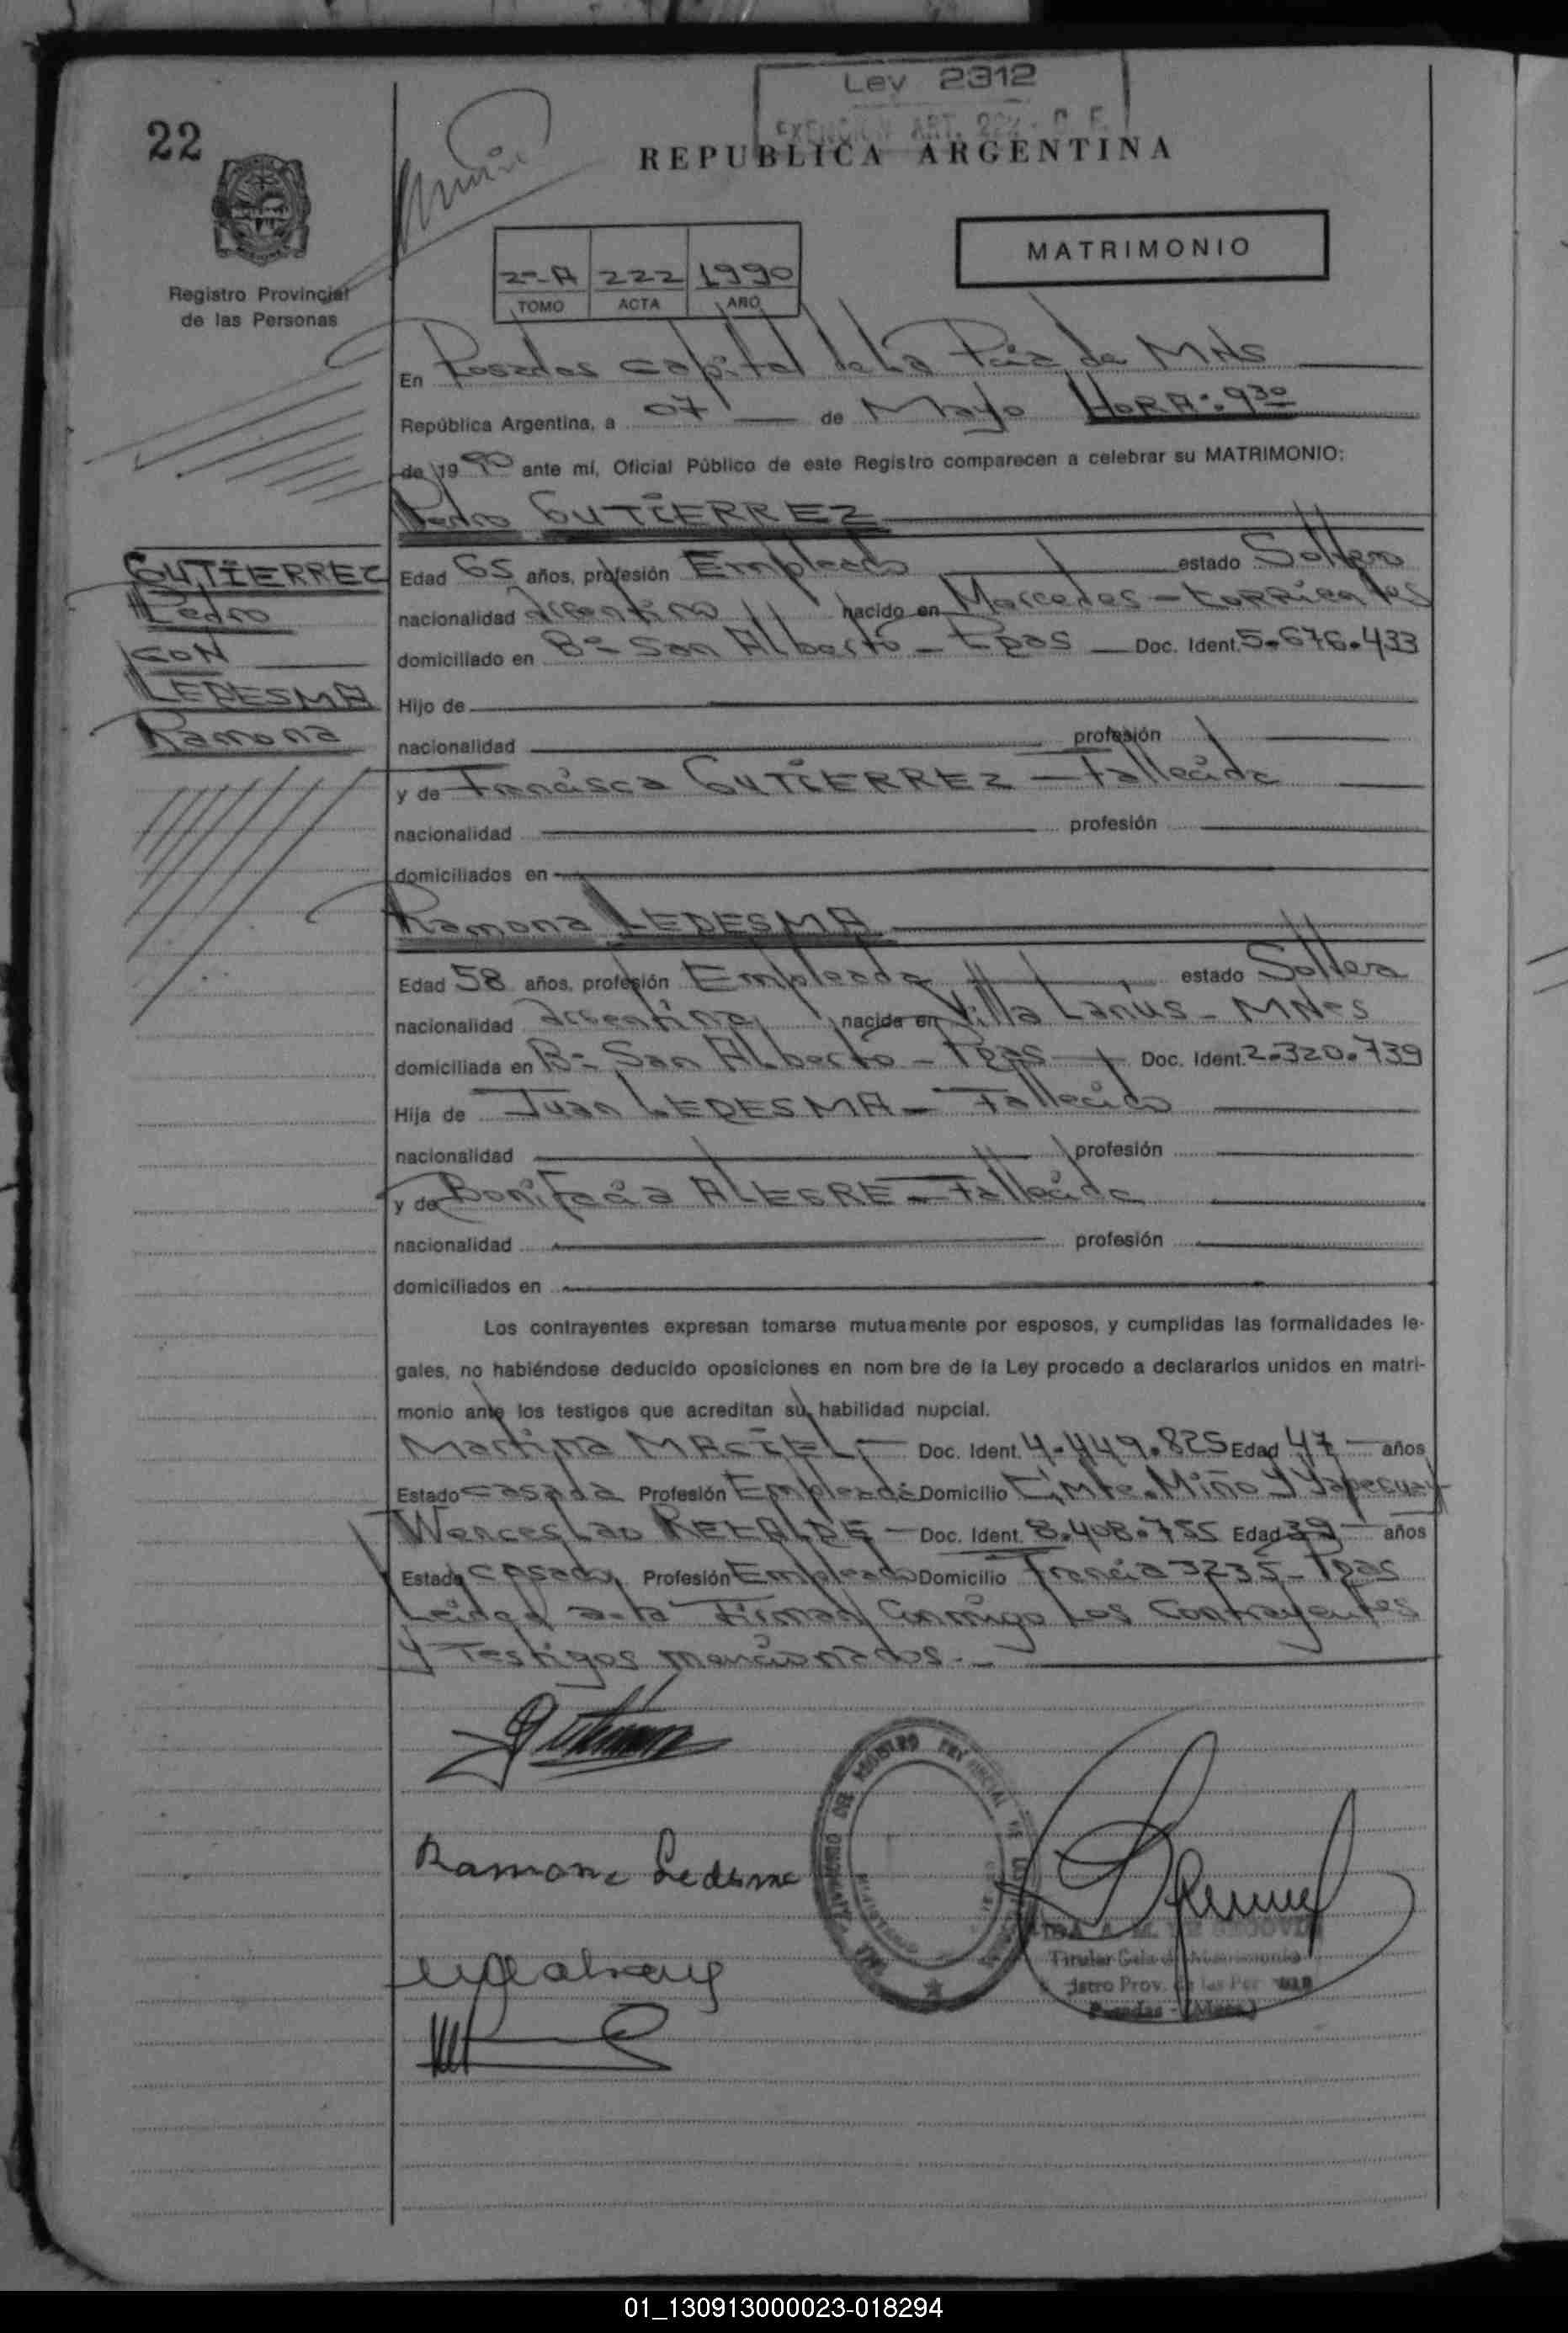 Ley 2312
EXENCION ART.
22
REPUBLICA ARGENTINA
MATRIMONIO
2º-A 222 1990
TOMO ACTA AÑO
Registro Provincial
de las Personas
En Posadas Capital de La Pcia de MNes
República Argentina, a 07 de Mayo HORA: 9 30
de 1990 ante mí, Oficial Público de este Registro comparecen a celebrar su MATRIMONIO:
Pedro GUTIERREZ
GUTIERREZ
Pedro
CON
LEDESMA
Ramona
Edad 65 años, profesión Empleado estado Soltero
nacionalidad Argentino nacido en Mercedes - Corrientes
domiciliado en Bº San Alberto - Pdas Doc. Ident. 5.676.433
Hijo de
nacionalidad profesión
y de Francisca GUTIERREZ - Fallecida
nacionalidad profesión
domiciliados en
Ramona LEDESMA
Edad 58 años, profesión Empleada estado Soltera
nacionalidad Argentina nacida en Villa Lanus - MNes
domiciliada en Bº San Alberto - Pdas Doc. Ident. 2.320.739
Hija de Juan LEDESMA - Fallecido
nacionalidad profesión
y de Bonifacia ALEGRE - Fallecida
nacionalidad profesión
domiciliados en
Los contrayentes expresan tomarse mutuamente por esposos, y cumplidas las formalidades le-
gales, no habiéndose deducido oposiciones en nom bre de la Ley procedo a declararlos unidos en matri-
monio ante los testigos que acreditan su habilidad nupcial.
Martina MACIEL - Doc. Ident. 4.449.825 Edad 47 años
Estado casada Profesión Empleada Domicilio Miño y Yapeyú
Wenceslao REKALDE - Doc. Ident. 8.408.755 Edad 39 años
Estado casado Profesión Empleado Domicilio Francia 3235 - Pdas
Leida el acta Firman Conmigo Los Contrayentes
y Testigos mencionados.-
Ramona Ledesma
A. M. DE SEGOVIA
Titular Sala de Matrimonio
Prov. de las Per
Posadas - (Mnes.)
01_130913000023-018294